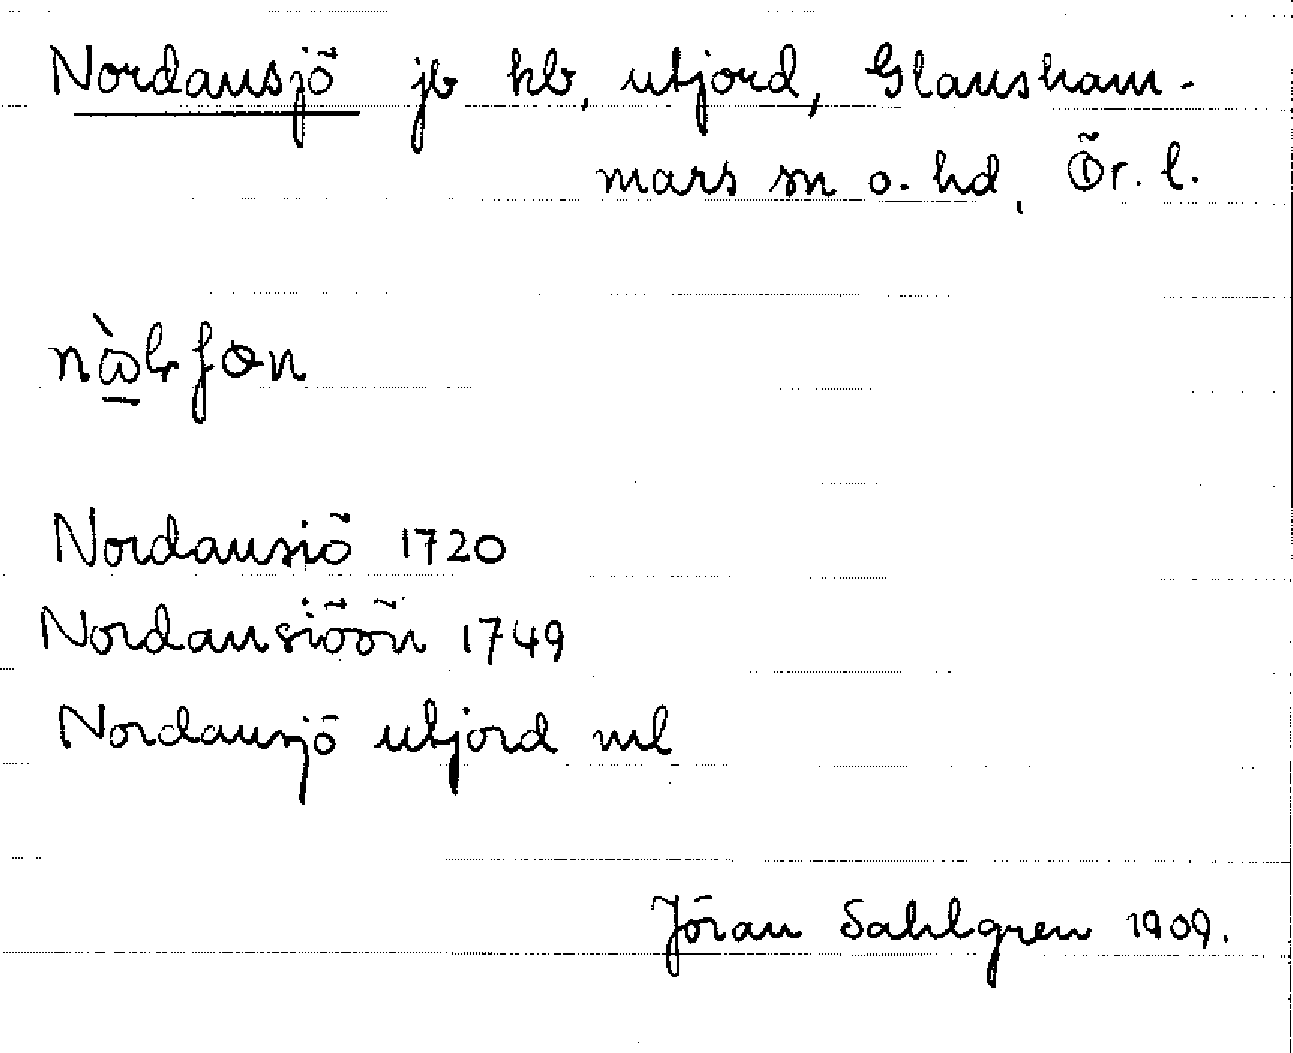 Nordansjö jb kb, utjord, Glansham-
mars sn o. hd, Ör. l.
Nordansiö 1720
Nordansiöön 1749
Nordansjö utjord ml
Jöran Sahlgren 1909.